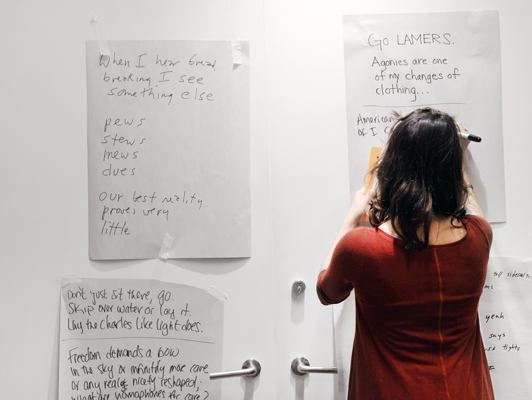 When I hear bread
breaking I see
something else
pews
stews
mews
dues
Our best reality
proves very
little
Don't just sit there, go.
Skip over water or lay it.
Lay the Charles like light does.
Freedom demands a bow
in the sky or infinitely more care
or any really nicely reshaped,
homophones for care?
GO LAMERS.
Agonies are one
of my changes of
clothing...
American
of I
yeah
says
tights